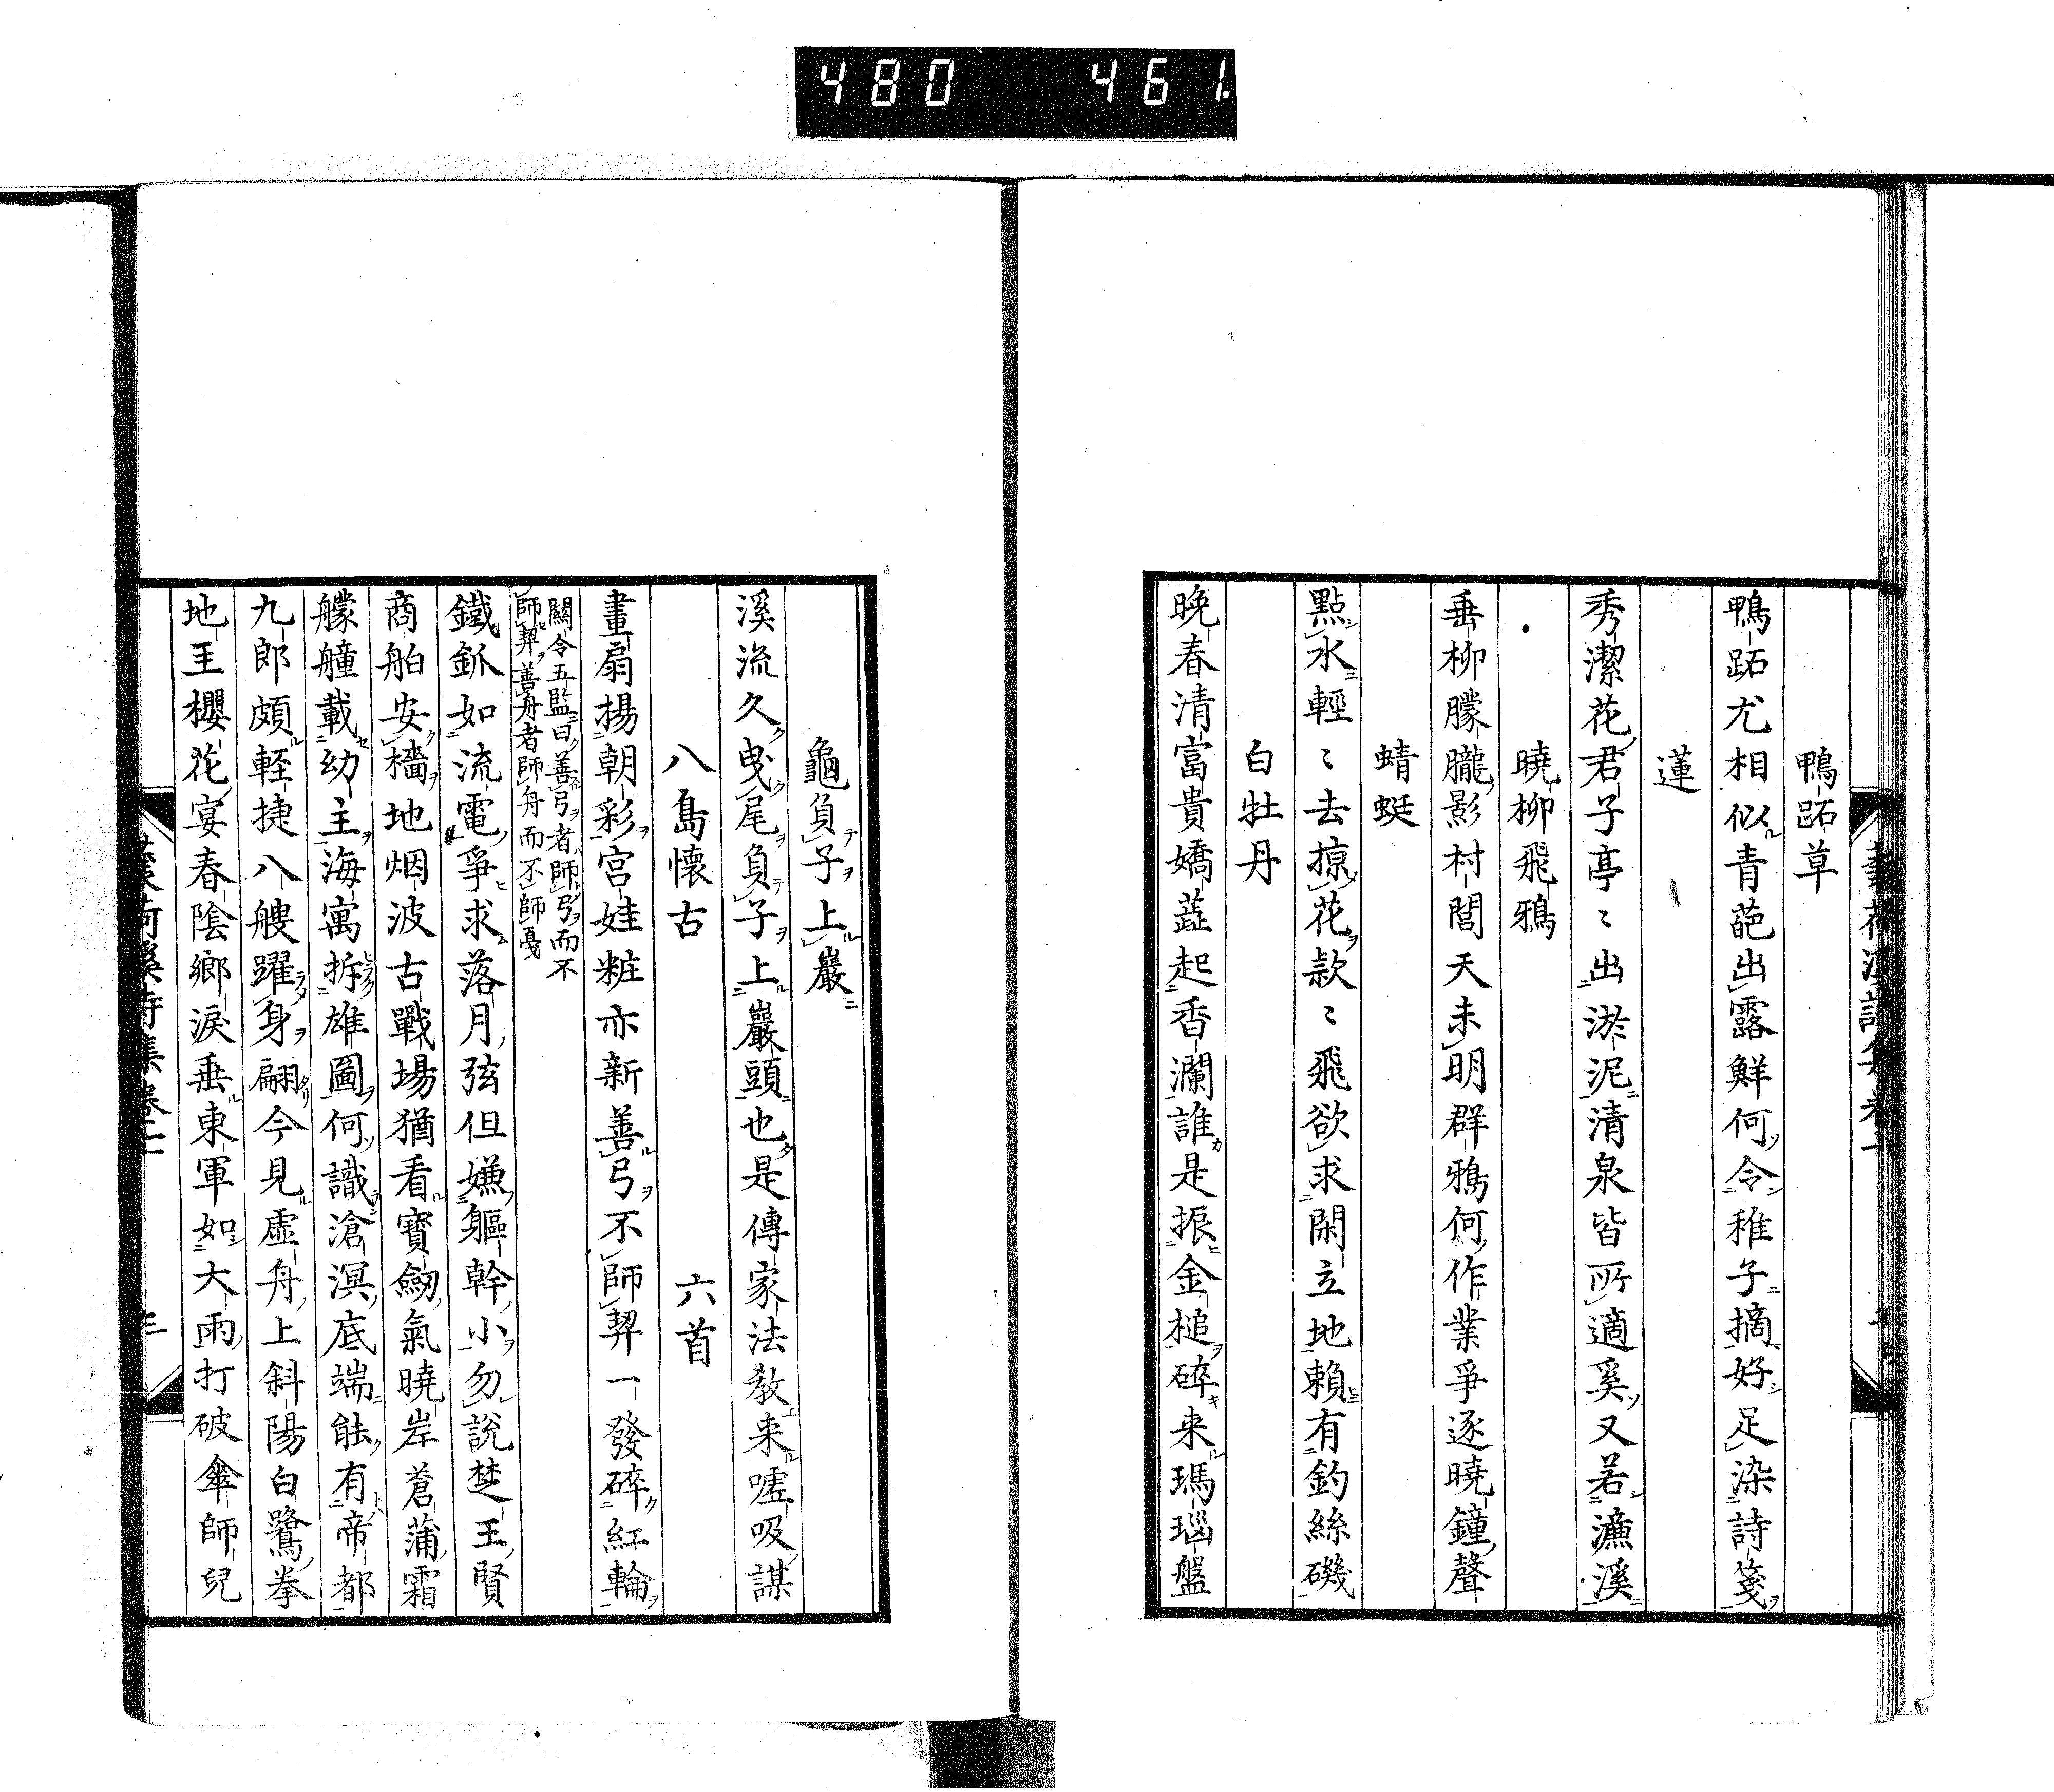 480 461.
鴨跖草
鴨跖尤相似青葩出露鮮何令稚子摘好足染詩箋
蓮
秀潔花君子亭〻出淤泥清泉皆所適奚又若濂溪
曉柳飛鴉
垂柳朦朧影村閭天未明群鴉何作業爭逐曉鐘聲
蜻蜓
點水輕〻去掠花款〻飛欲求閑立地賴有釣絲磯
白牡丹
晚春清富貴嬌蕋起香瀾誰是振金槌碎来瑪瑙盤
龜負子上巖
溪流久曳尾負子上巖頭也是傳家法教来噓吸謀
八島懷古 六首
畫扇揚朝彩宮娃粧亦新善弓不師羿一發碎紅輪
關令五監曰善弓者師弓而不
師羿善舟者師舟而不師奡
鐵釽如流電爭求落月弦但嫌軀幹小勿說楚王賢
商舶安檣地烟波古戰場猶看寶劔氣曉岸蒼蒲霜
艨艟載幼主海寓拆雄圖何識滄溟底端能有帝都
九郎頗軽捷八艘躍身翩今見虛舟上斜陽白鷺拳
地主櫻花宴春陰鄉淚垂東軍如大雨打破傘師兒
溪詩集卷二 三